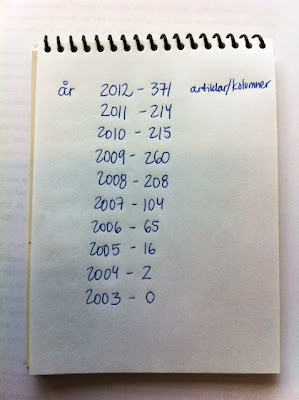 år 2012 - 371 artiklar/kolumner
2011 - 214
2010 - 215
2009 - 260
2008 - 208
2007 - 104
2006 - 65
2005 - 16
2004 - 2
2003 - 0